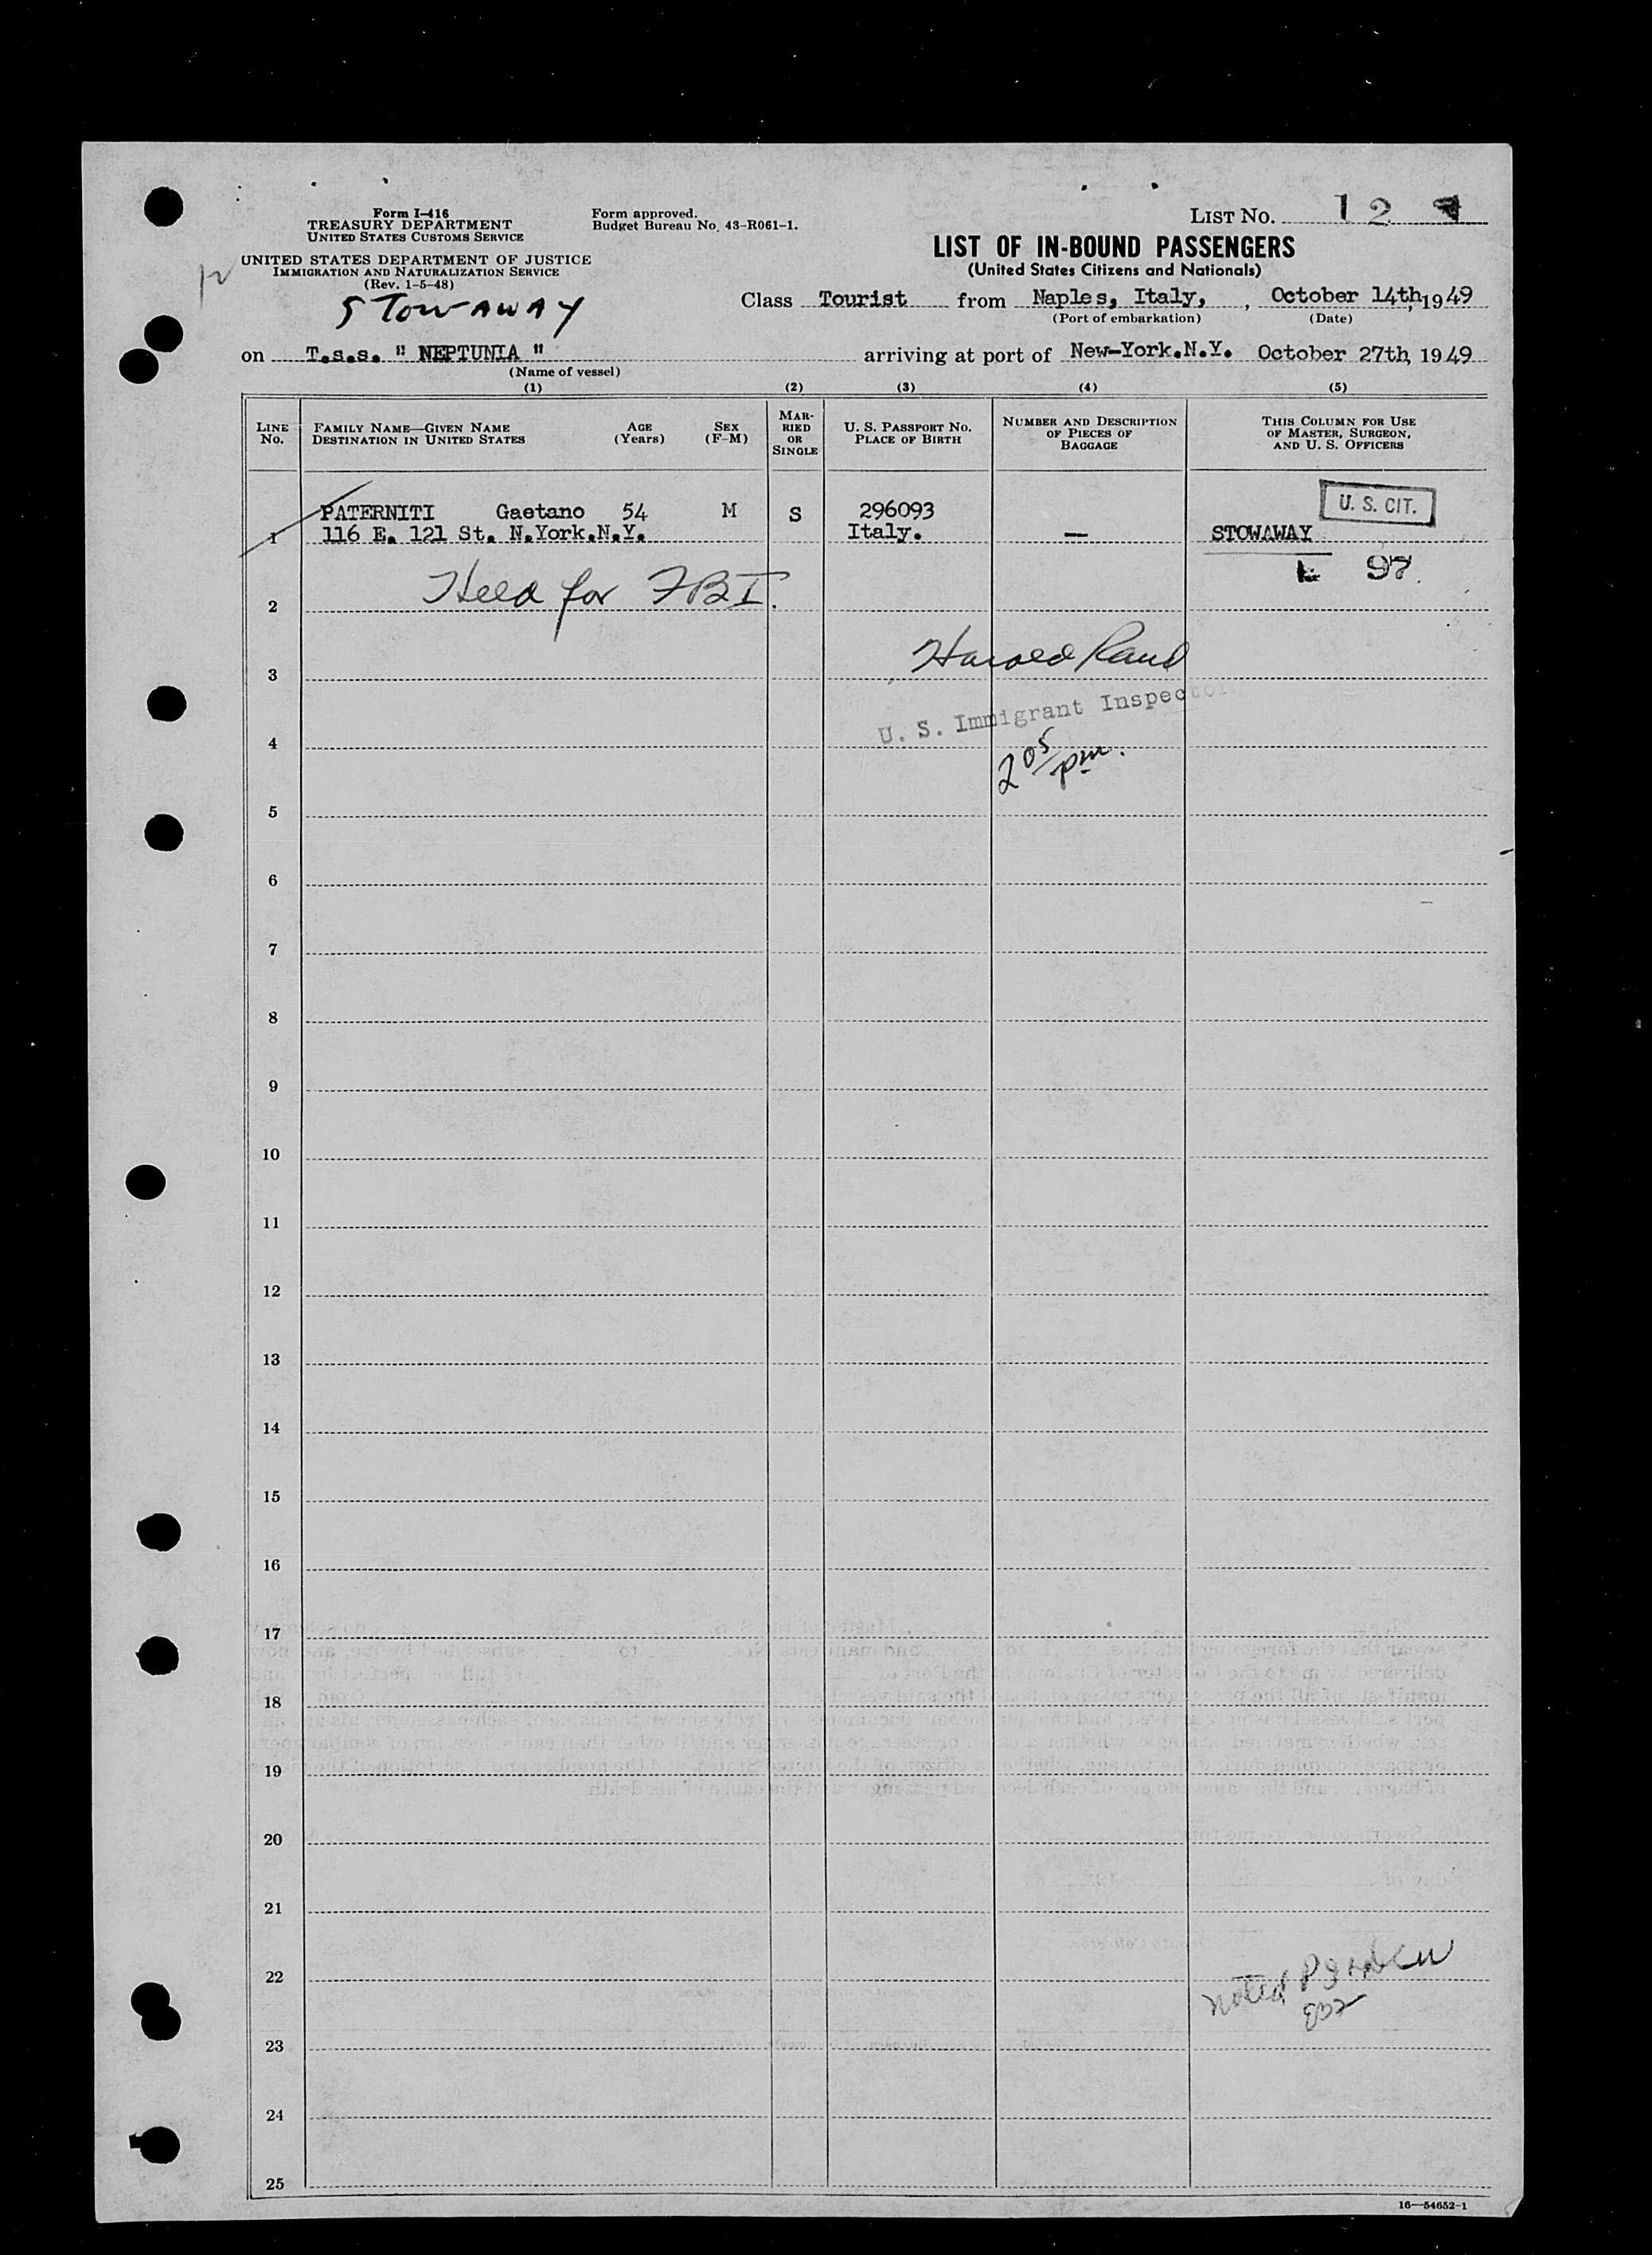 Form I-416
TREASURY DEPARTMENT
UNITED STATES CUSTOMS SERVICE
UNITED STATES DEPARTMENT OF JUSTICE
IMMIGRATION AND NATURALIZATION SERVICE
(Rev. 1-5-48)
STOWAWAY
Form approved.
Budget Bureau No. 43-R061-1.
LIST NO. 12
LIST OF IN-BOUND PASSENGERS
(United States Citizens and Nationals)
Class Tourist from Naples, Italy, , October 14th, 1949
(Port of embarkation) (Date)
on T.s.s. " NEPTUNIA " arriving at port of New-York.N.Y. October 27th, 1949
(Name of vessel)
(1) (2) (3) (4) (5)
LINE No. FAMILY NAME—GIVEN NAME DESTINATION IN UNITED STATES AGE (Years) SEX (F-M) MARRIED OR SINGLE U. S. PASSPORT NO. PLACE OF BIRTH NUMBER AND DESCRIPTION OF PIECES OF BAGGAGE THIS COLUMN FOR USE OF MASTER, SURGEON, AND U. S. OFFICERS
PATERNITI Gaetano 54 M S 296093 U. S. CIT.
1 116 E. 121 St. N.York.N.Y. Italy. — STOWAWAY
97
2 Held for FBI.
3 Harold Rand
U. S. Immigrant Inspector
4
2 05/pm.
5
6
7
8
9
10
11
12
13
14
15
16
17
18
19
20
21
22 noted
23
24
25
16—54652-1